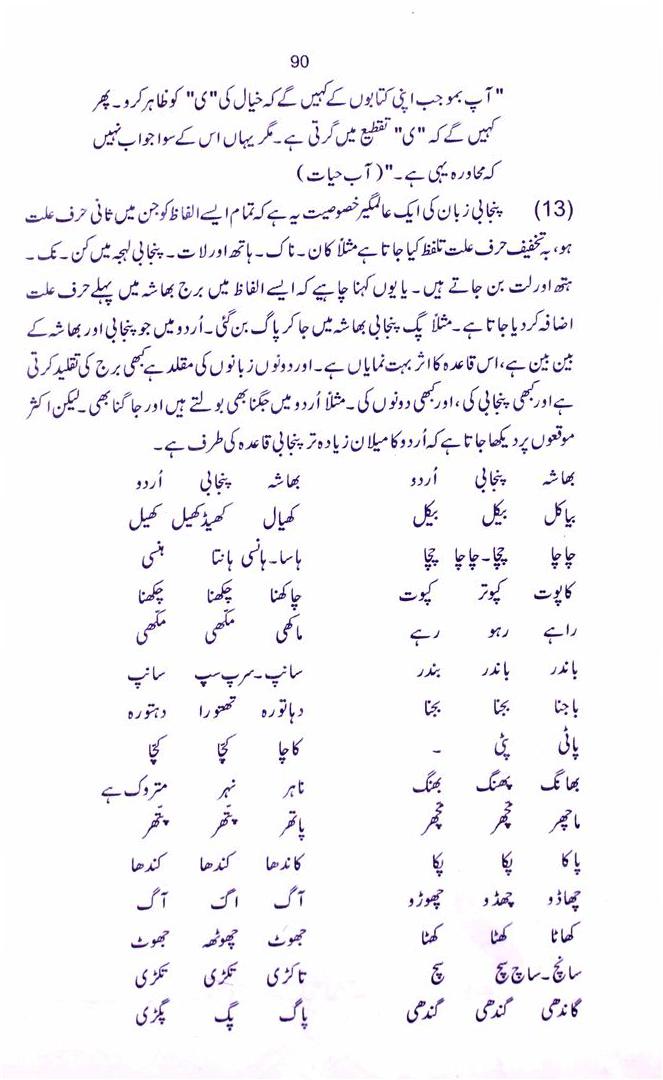 90
"آپ بموجب اپنی کتابوں کے کہیں گے کہ خیال کی "ی" کو ظاہر کرو۔ پھر
کہیں گے کہ "ی" تقطیع میں گرتی ہے۔ مگر یہاں اس کے سوا جواب نہیں
کہ محاورہ یہی ہے۔" (آب حیات)
(13) پنجابی زبان کی ایک عالمگیر خصوصیت یہ ہے کہ تمام ایسے الفاظ کو جن میں ثانی حرف علت
ہو، بہ تخفیف حرف علت تلفظ کیا جاتا ہے مثلاً کان۔ ناک۔ ہاتھ اور لات۔ پنجابی لہجہ میں کن۔ نک۔
ہتھ اور لت بن جاتے ہیں۔ یا یوں کہنا چاہیے کہ ایسے الفاظ میں برج بھاشہ میں پہلے حرف علت
اضافہ کر دیا جاتا ہے۔ مثلاً پگ پنجابی بھاشہ میں جا کر پاگ بن گئی۔ اُردو میں جو پنجابی اور بھاشہ کے
بین بین ہے، اس قاعدہ کا اثر بہت نمایاں ہے۔ اور دونوں زبانوں کی مقلد ہے کبھی برج کی تقلید کرتی
ہے اور کبھی پنجابی کی، اور کبھی دونوں کی۔ مثلاً اُردو میں جگنا بھی بولتے ہیں اور جاگنا بھی۔ لیکن اکثر
موقعوں پر دیکھا جاتا ہے کہ اُردو کا میلان زیادہ تر پنجابی قاعدہ کی طرف ہے۔
بھاشہ پنجابی اُردو بھاشہ پنجابی اُردو
بیاکل بیکل بیکل کھیال کھیڈ کھیل کھیل
چاچا چچا۔ چاچا چچا ہاسا۔ ہانسی ہانتا ہنسی
کاپوت کپوتر کپوت چاکھنا چکھنا چکھنا
راہے رہو رہے ماکھی مکّھی مکّھی
باندر باندر بندر سانپ۔ سرپ سپ سانپ
باجنا بجنا بجنا دہاتورہ تھتورا دہتورہ
پاٹی پٹی ۔ کاچا کچّا کچّا
بھانگ پھنگ بھنگ ناہر نہر متروک ہے
ماچھر مچھّر مچھّر پاتھر پتّھر پتّھر
پاکا پکا پکا کاندھا کندھا کندھا
چھاڈو چھڈو چھوڑو آگ اگ آگ
کھاٹا کھٹا کھٹا جھوٹ چھوٹھ جھوٹ
سانچ۔ ساچ سچ سچ تاکڑی تکڑی تکڑی
گاندھی گندھی گندھی پاگ پگ پگڑی